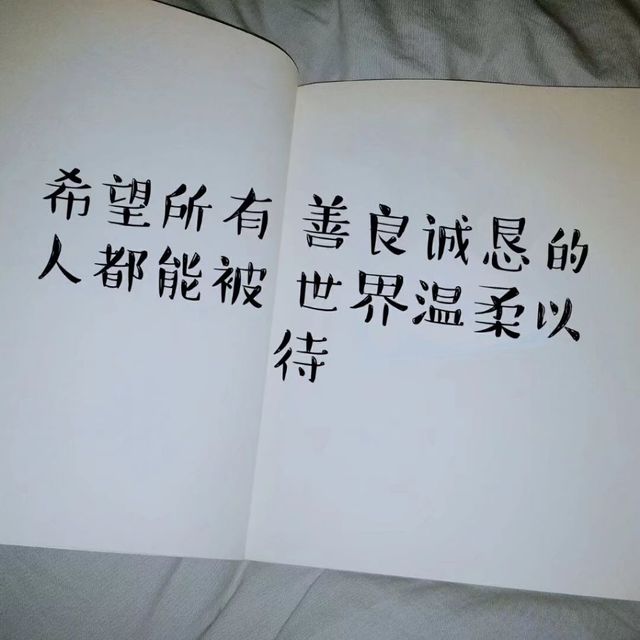 希望所有善良诚恳的
人都能被世界温柔以
待